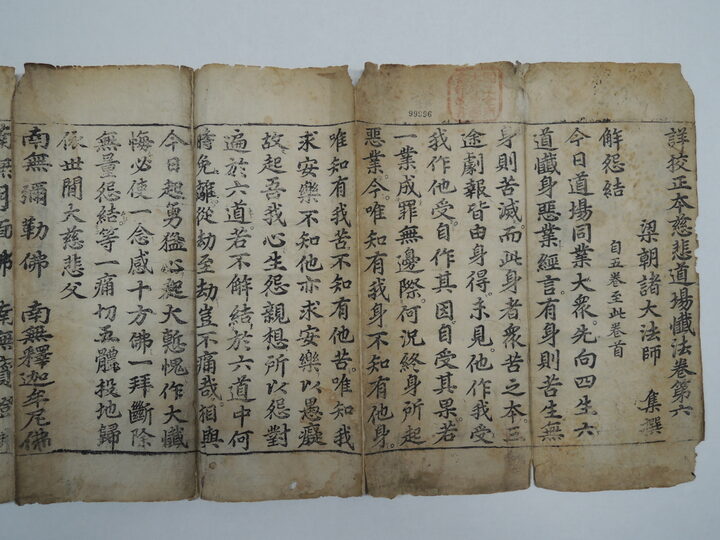 99896
詳校正本慈悲道場懺法卷第六
梁朝諸大法師 集撰
解怨結 自五卷至此卷首
今日道場同業大衆先向四生六
道懺身惡業經言有身則苦生無
身則苦滅而此身者衆苦之本三
途劇報皆由身得未見他作我受
我作他受自作其因自受其果若
一業成罪無邊際何況終身所起
惡業今唯知有我身不知有他身
唯知有我苦不知有他苦唯知我
求安樂不知他亦求安樂以愚癡
故起吾我心生怨親想所以怨對
遍於六道若不解結於六道中何
時免離從劫至劫豈不痛哉相與
今日起勇猛心起大慙愧作大懺
悔必使一念感十方佛一拜斷除
無量怨結等一痛切五體投地歸
依世間大慈悲父
南無彌勒佛 南無釋迦牟尼佛